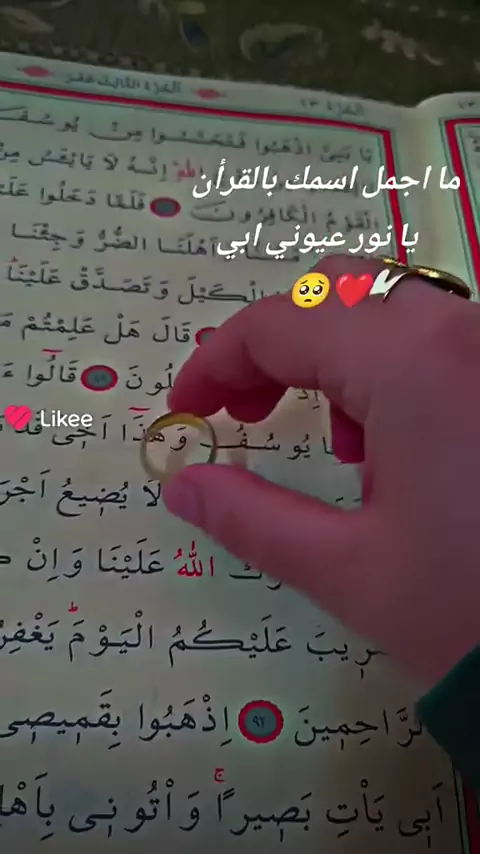 الجزء الثالث عشر
الجزء ١٣
١٣
ما اجمل اسمك بالقرأن
يا نور عيوني ابي
🥺❤️
Likee
يَا بَنِيَّ اذْهَبُوا فَتَحَسَّسُوا مِنْ يُوسُفَ
اللّٰهِ اِنَّهُ لَا يَايْـَٔسُ مِنْ
الْقَوْمُ الْكَافِرُونَ فَلَمَّا دَخَلُوا عَلَيْ
اَهْلَنَا الضُّرُّ وَجِئْنَا
الْكَيْلَ وَتَصَدَّقْ عَلَيْنَا
قَالَ هَلْ عَلِمْتُمْ مَ
قَالُوا ءَ
يُوسُفُ وَهٰذَا اَخ۪ي قَدْ
لَا يُض۪يعُ اَجْرَ
اللّٰهُ عَلَيْنَا وَاِنْ
عَلَيْكُمُ الْيَوْمَ يَغْفِرُ
الرَّاحِم۪ينَ ٩٢ اِذْهَبُوا بِقَم۪يص۪ي
اَب۪ي يَأْتِ بَص۪يرًا وَأْتُون۪ي بِاَهْلِ